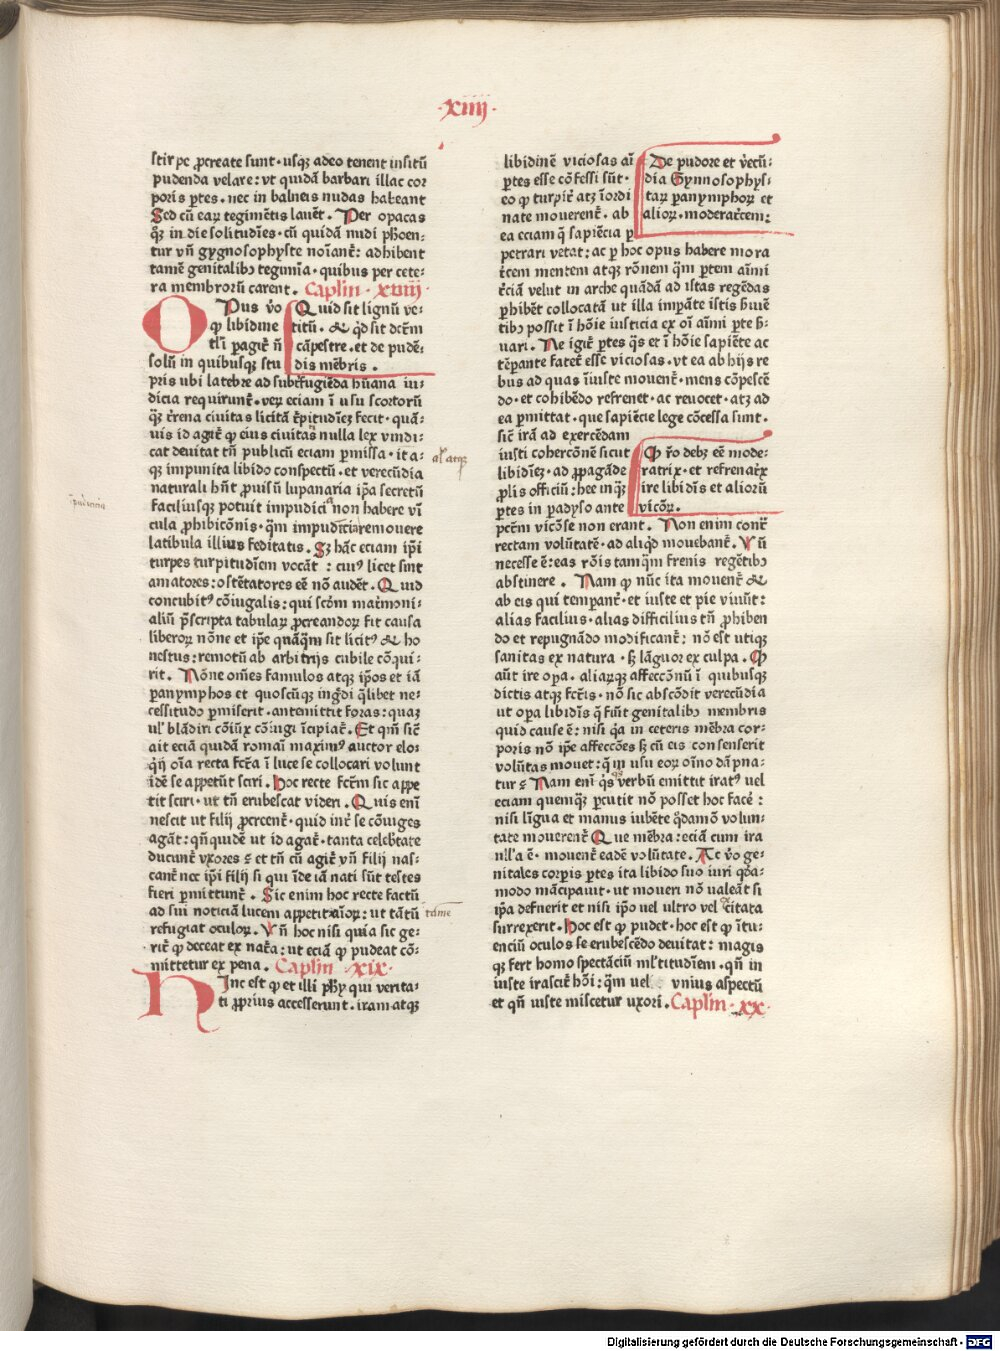 ·xiiij·
stirpe ꝓcreate sunt·usqꝫ adeo tenent insitū
pudenda velare: vt quidā barbari illac cor
poris ꝑtes·nec in balneis nudas habeant
Sed cū eaꝝ tegimētis lauēt. Per opacas
qꝫ indie solitudīes·cū quidā nudi phōen-
tur vñ gygnosophyste noīant̄: adhibent
tamē genitalibꝰ tegimīa·quibus per cete-
ra membrorū carent. Caplm·xviij·
OPus v̓o Quid sit lignū ve-
ꝙ libidine titū·& qd̓ sit dcr̄m
tl̓i ꝑagit̄ ñ cāpestre·et de pudē-
solū in quibusqꝫ stu dis mēbris.
pris ubi latebre ad subt̓fugiēda hūana iu-
dicia requirunt̄·veꝝ eciam ī usu scortorū
qꝫ t̓rena ciuitas licitā t̓pitudīeꝫ fecit·quā-
uis id agit̄ ꝙ eius ciuitas nulla lex vindi-
cat deuitat tñ publicū eciam ꝑmissa·ita- al̓ atqꝫ
qꝫ impunita libido conspectū·et verecūdia
naturali hn̄t ꝓuisū lupanaria ip̄a secretū
faciliusqꝫ potuit impudicia non habere vī
cula ꝓhibicōnis·qm̄ impudicicia remouere
latibula illius feditatis. Sꝫ hāc eciam ip̄i
turpes turpitudīem vocāt: cuiꝰ licet sint
amatores: ostētatores eē nō audēt. Quid
concubitꝰ cōiugalis: qui scdm̄ mat̓moni-
aliū p̄scripta tabulaꝝ ꝓcreandoꝝ fit causa
liberoꝝ nōne et ip̄e quāqm̄ sit licitꝰ & ho
nestus: remotū ab arbitrijs cubile cōqui-
rit. Nōne om̄es famulos atqꝫ ip̄os et iā
ꝑanymphos et quoscūqꝫ ingd̓i qīlibet ne-
cessitudo ꝑmiserit·antemittit foras: quaꝫ
ul̓ blādiri cōiūx cōiugi īcipiat̄. Et qm̄ sic̄
ait eciā quidā romaī maximꝰ auctor eloꝫ
qij oīa recta fct̄a ī luce se collocari volunt
idē se appetūt sciri. Hoc recte fct̄m sic appe
tit sciri·ut tñ erubescat videri. Quis enī
nescit ut filij ꝓcreent̄·quid int̓ se cōiuges
agāt: qn̄quidē ut id agat̄·tanta celeb̓tate
ducunt̄ vxores ⁊ et tñ cū agit̄ vñ filij nas-
cant̄ nec ip̄i filij si qui īde iā nati sūt testes
fieri ꝑmittunt̄. Sic enim hoc recte factū
ad sui noticiā lucem appetit aīoꝝ: ut tātū tame
refugiat oculoꝝ. Vñ hoc nisi quia sic ge-
rit̄ ꝙ deceat ex nat̓a: ut eciā ꝙ pudeat cō-
mittetur ex pena. Caplm·xix·
HInc est ꝙ et illi phȳ qui verita-
ti ꝓprius accesserunt·iram atqꝫ
libidinē viciosas aī De pudore et v̓ecū-
ꝑtes esse cōfessi sūt· dia Gynnosophys-
eo ꝙ turpit̓ atqꝫ īordi taꝝ ꝑanymphoꝝ et
nate mouerent̄·ab alioꝝ·moderat̓cem:
ea eciam q̄ sapiēcia ꝑ
petrari vetat: ac ꝑ hoc opus habere mora
t̓cem mentem atqꝫ rōnem qm̄ ꝑtem aīmi
t̓ciā velut in arche quādā ad istas regēdas
ꝑhibēt collocatā ut illa imꝑāte istis s̓uiē
tibꝰ possit ī hōie iusticia ex oī aīmi ꝑte s̓-
uari. Ne igit̄ ꝑtes qs̄ et ī hōie sapiēte ac
tēꝑante fatet̄ esse viciosas·vt ea ab hijs re
bus ad quas īiuste mouent̄·mens cōpescē
do·et cohibēdo refrenet·ac reuocet·atqꝫ ad
ea ꝑmittat·que sapiēcie lege cōcessa sunt·
sic̄ irā ad exercēdam
iusti cohercōnē sicut Ꝙ r̓o debꝫ eē mode-
libidīeꝫ·ad ꝓpagāde ratrix·et refrenat̓x
ꝓlis officiū: hee inqꝫ ire libidīs et aliorū
ꝑtes in padyso ante vicōꝝ.
pct̄m vicōse non erant. Non enim cont̓
rectam volūtatē·ad aliqd̓ mouebant̄. Vñ
necesse ē: eas rōis tamqm̄ frenis regētibꝰ
abstinere. Nam ꝙ nūc ita mouent̄ &
ab eis qui tempant̄·et iuste et pie viuūt:
alias facilius·alias difficilius tñ ꝓhiben
do et repugnādo modificant̄: nō est utiqꝫ
sanitas ex natura·sꝫ lāguor ex culpa. Ꝙ
aūt ire opa·aliaꝝqꝫ affeccōnū ī quibusqꝫ
dictis atqꝫ fct̄is·nō sic abscōdit verecūdia
ut opa libidīs q̄ fiūt genitalibꝰ membris
quid cause ē: nisi q̄a in ceteris mēbra cor-
poris nō ip̄e affeccōes sꝫ cū eis consenserit
volūtas mouet: q̄ in usu eoꝝ oīno dāpna-
tur ⁊ Nam enī qs̄qꝫ verbū emittit iratꝰ uel
eciam quemqꝫ ꝑcutit nō posset hoc face̓:
nisi līgua et manus iubēte qd̓amō volun-
tate mouerent̄ Que mēbra: eciā cum ira
nl̓la ē·mouent̄ eadē volūtate. At v̓o ge-
nitales corꝑis ꝑtes ita libido suo iuri qd̓a-
modo mācipauit·ut moueri nō valeāt si
ip̄a defuerit et nisi ip̄o uel ultro vel excitata
surrexerit. Hoc est ꝙ pudet·hoc est ꝙ ītu-
enciū oculos se erubescēdo deuitat: magis
qꝫ fert homo spectāciū ml̓titudīem·qñ in
iuste irascit̄ hōi: qm̄ uel vnius aspectū
et qñ iuste miscetur uxori. Caplm·xx·